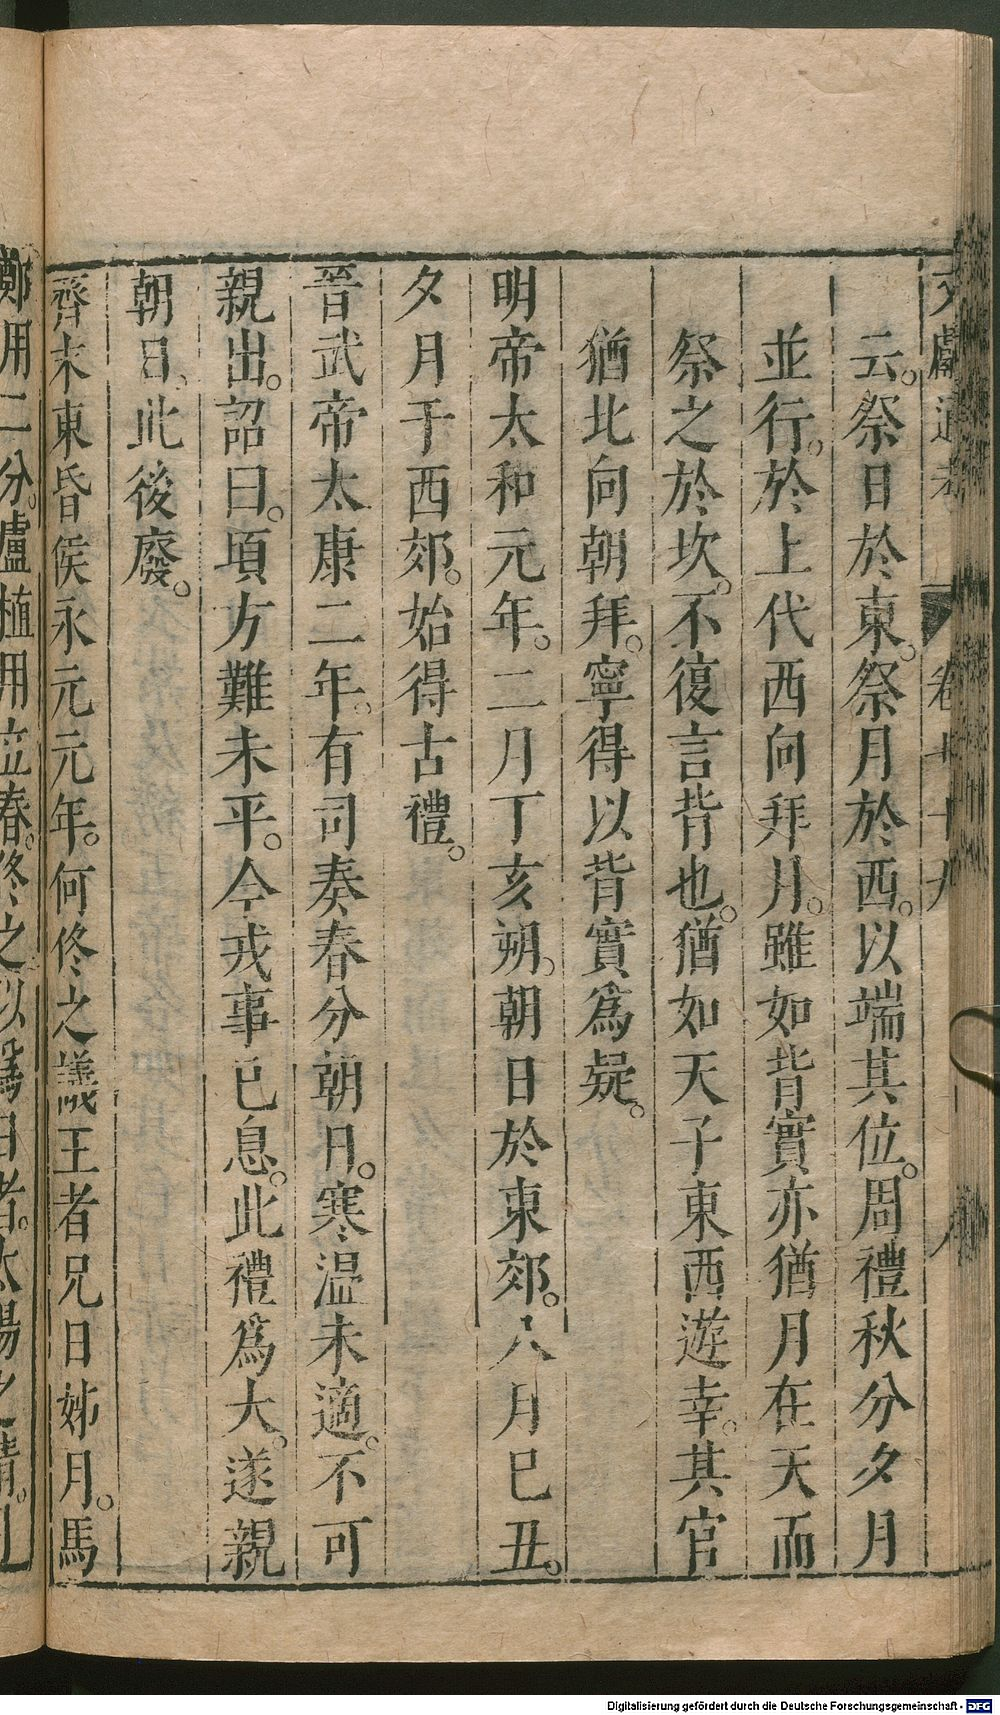 文獻通考 卷七十九 八
云。祭日於東。祭月於西。以端其位。周禮秋分夕月
並行。於上代西向拜月。雖如背實亦猶月在天而
祭之於坎。不復言背也。猶如天子東西遊幸。其官
猶北向朝拜。寧得以背實爲疑。
明帝太和元年。二月丁亥朔。朝日於東郊。八月巳丑。
夕月于西郊。始得古禮。
晉武帝太康二年。有司奏春分朝日。寒溫未適。不可
親出。詔曰。頃方難未平。今戎事已息。此禮爲大。遂親
朝日。此後廢。
齊末東昏侯永元元年。何佟之議王者兄日姊月。馬
鄭用二分。盧植用立春。佟之以爲日者。太陽之精。
Digitalisierung gefördert durch die Deutsche Forschungsgemeinschaft - DFG